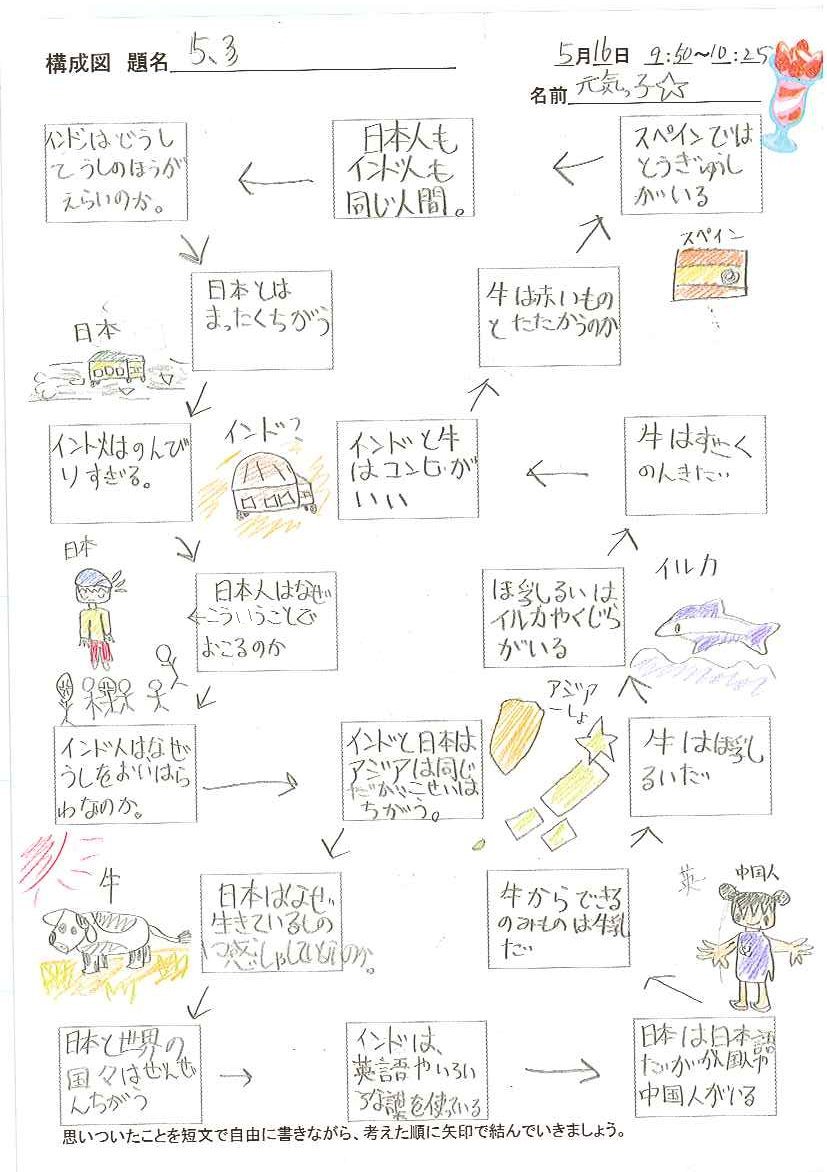 構成図 題名 15、3
5月16日 9:50~10:25
名前 元気っ子☆
スペインでは
とうぎゅうし
がいる
日本人も
インド人も
同じ人間。
インドはどうし
てうしのほうが
えらいのか。
スペイン
日本とは
まったくちがう
牛は赤いもの
とたたかうのか
日本
インド人はのんび
りすぎる。
インド?
インドと牛
はコンビが
いい
牛はすごく
のんきだ
日本
日本人はなぜ
こういうことで
おこるのか
ほ乳るいは
イルカやくじら
がいる
イルカ
インド人はなぜ
うしをおいはら
わなのか。
インドと日本は
アジアは同じ
だがこせいは
ちがう。
アジア
一しょ
牛はほ乳
るいだ
牛
日本はなぜ
生きているもの
に感しゃしないのか。
牛からできる
のみものは牛乳
だ
英
中国人
日本と世界の
国々はぜんぜ
んちがう
インドは、
英語やいろい
ろな語を使っている
日本は日本語
だが外国人や
中国人がいる
思いついたことを短文で自由に書きながら、考えた順に矢印で結んでいきましょう。